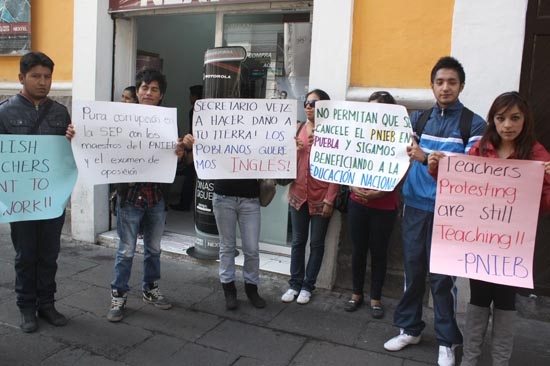 LISH
CHERS
NT TO
WORK!!
Pura corrupción en
la SEP con los
maestros del PNIEB
y el examen de
oposición
SECRETARIO VETE
A HACER DAÑO A
TU TIERRA! LOS
POBLANOS QUERE
MOS INGLÉS!
NO PERMITAN QUE SE
CANCELE EL PNIEB EN
PUEBLA Y SIGAMOS
BENEFICIANDO A LA
EDUCACIÓN NACIONAL
Teachers
Protesting
are still
Teaching!!
-PNIEB
MOTOROLA